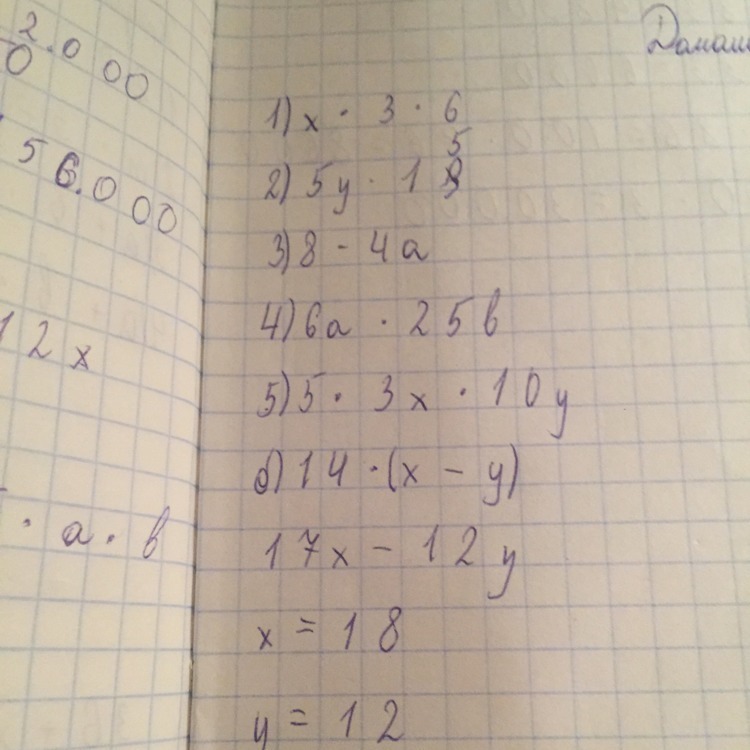 2.000
0
56.000
12x
· a · b
Дома
1) x · 3 · 6
2) 5y · 15
3) 8 - 4a
4) 6a · 25b
5) 5 · 3x · 10y
6) 14 · (x - y)
17x - 12y
x = 18
y = 12